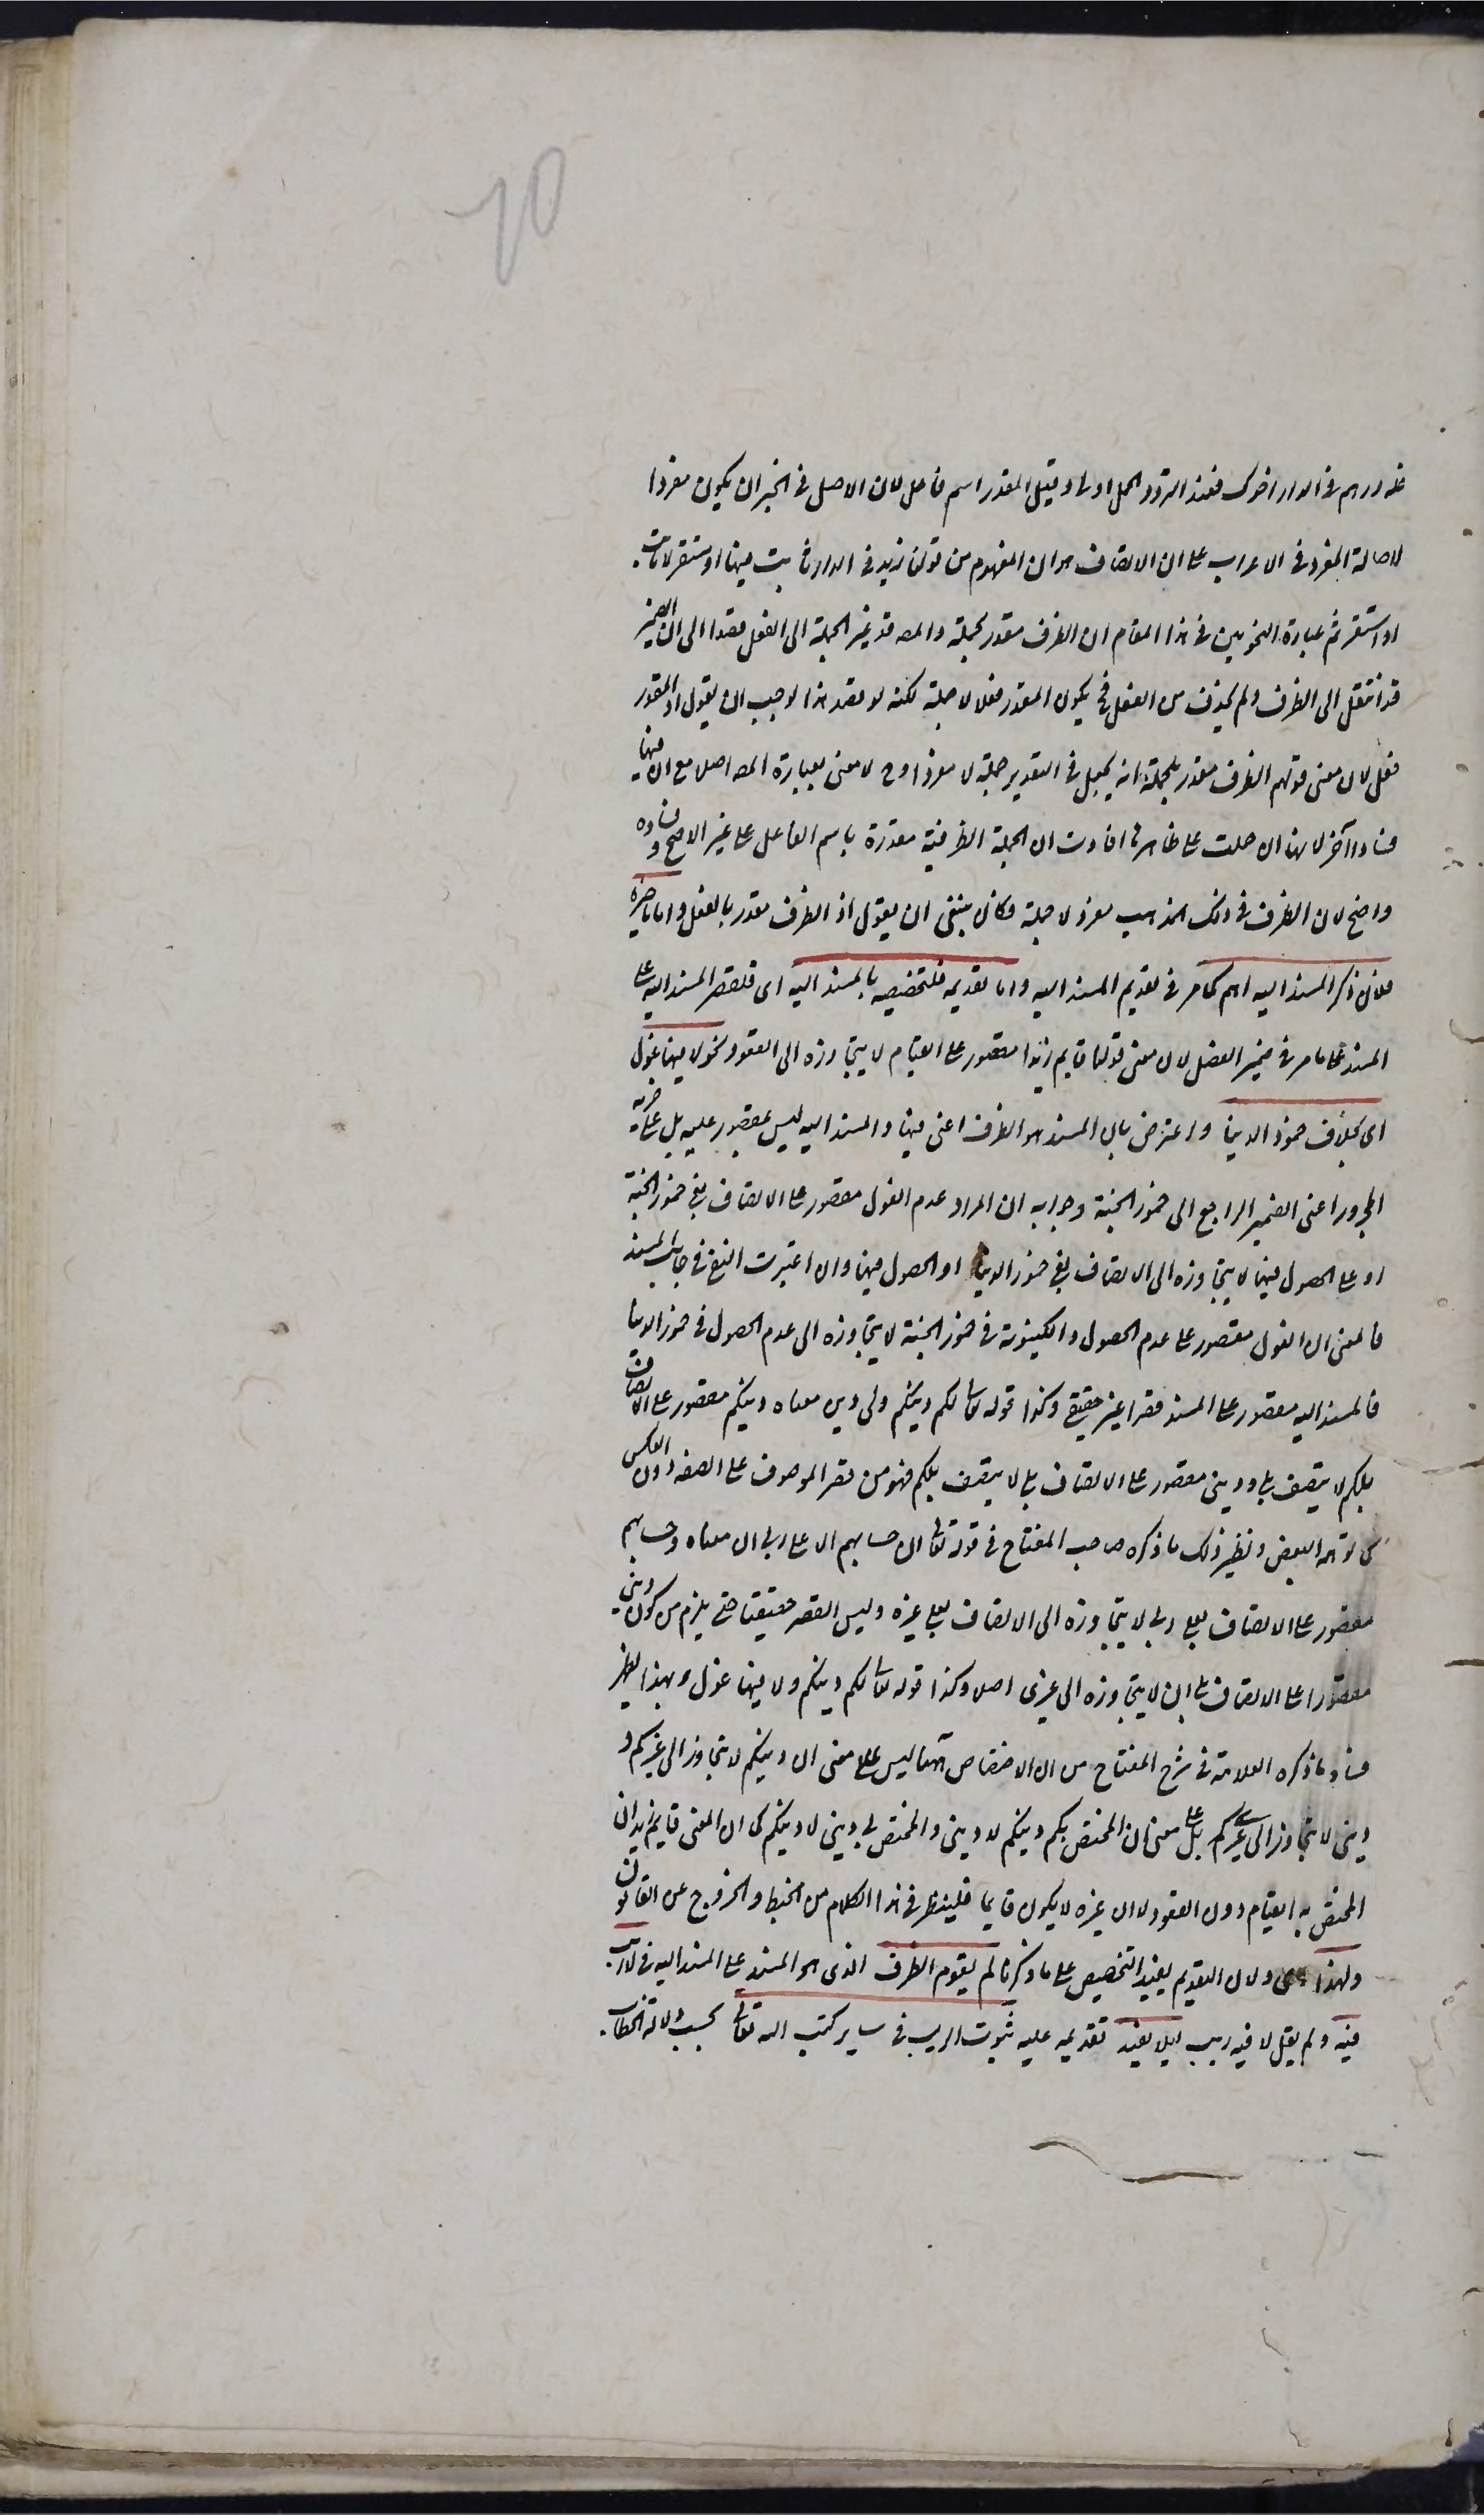 فله درهم في الدار اخوك فعند التردد الحمل اولى وقيل المقدر اسم فاعل لان الاصل في الخبر ان يكون مفردا
لاصالة المفرد في الاعراب على ان الانصاف هو ان المفهوم من قولنا زيد في الدار ثابت فيها او مستقر لا ثبت
او استقر ثم عبارة النحويين في هذا المقام ان الظرف مقدر بجملة والمص قد غير الجملة الى الفعل قصدا الى ان الضمير
قد انتقل الى الظرف ولم يحذف من الفعل فح يكون المقدر فعلا لا جملة لكنه لو قصد هذا لوجب ان يقول اذ المقدر
فعل لان معنى قولهم الظرف مقدر بجملة انه يجعل في التقدير جملة لا مفردا وح لا معنى لعبارة المص اصلا مع ان فيها
فسادا آخر لانها ان حملت على ظاهرها افادت ان الجملة الظرفية مقدرة باسم الفاعل على غير الاصح وفساده
واضح لان الظرف في ذلك المذهب مفرد لا جملة فكان ينبغي ان يقول اذ الظرف مقدر بالفعل واما تاخيره
فلان ذكر المسند اليه اهم كما مر في تقديم المسند اليه واما تقديمه فلتخصيصه بالمسند اليه اى قلقصر المسند اليه على
المسند على ما مر في ضمير الفصل لان معنى قولنا قايم زيد انه مقصور على القيام لا يتجاوزه الى القعود نحو لا فيها غول
اى بخلاف خمور الدنيا واعترض بان المسند هو الظرف اعنى فيها والمسند اليه ليس بمقصور عليه بل على جزئه
المجرور اعنى الضمير الراجع الى خمور الجنة وجوابه ان المراد عدم الغول مقصور على الاتصاف بفى خمور الجنة
او على الحصول فيها لا يتجاوزه الى الاتصاف بفى خمور الدنيا او الحصول فيها وان اعتبرت النفي في جانب المسند
فالمعنى ان الغول مقصور على عدم الحصول والكينونة في خمور الجنة لا يتجاوزه الى عدم الحصول في خمور الدنيا
فالمسند اليه مقصور على المسند قصرا غير حقيقي وكذا قوله تعالى لكم دينكم ولى دين معناه دينكم مقصور على الاتصاف
بلكم لا يتصف بلى وديني مقصور على الاتصاف بلى لا يتصف بلكم فهو من قصر الموصوف على الصفة دون العكس
كما توهمه البعض ونظير ذلك ما ذكره صاحب المفتاح في قوله تعالى ان حسابهم الا على ربى ان معناه حسابهم
مقصور على الاتصاف بعلى ربى لا يتجاوزه الى الاتصاف بعلى غيره وليس القصر حقيقيا حتى يلزم من كون ديني
مقصورا على الاتصاف بلى ان لا يتجاوزه الى غيرى اصلا وكذا قوله تعالى لكم دينكم ولا فيها غول وبهذا يظهر
فساد ما ذكره العلامة في شرح المفتاح من ان الاختصاص ههنا ليس على معنى ان دينكم لا يتجاوز الى غيركم و
ديني لا يتجاوز الى غيركم بل على معنى ان المختص بكم دينكم لا ديني والمختص بى ديني لا دينكم كما ان المعنى قايم زيد ان
المختص به القيام دون القعود لا ان غيره لا يكون قايما فلينظر في هذا الكلام من الخبط والخروج عن القانون
ولهذا اى ولان التقديم يفيد التخصيص على ما ذكرنا لم يقدم الظرف الذى هو المسند على المسند اليه في لا ريب
فيه ولم يقل لا فيه ريب ليلا يفيد تقديمه عليه ثبوت الريب في ساير كتب الله تعالى بحسب دلالة الخطاب